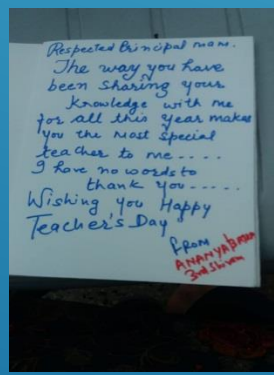 Respected Principal mam.
The way you have
been sharing your
knowledge with me
for all this year makes
you the most special
teacher to me....
I have no words to
thank you.....
Wishing you Happy
Teacher's Day
FROM
ANANYA
3rd Shivam